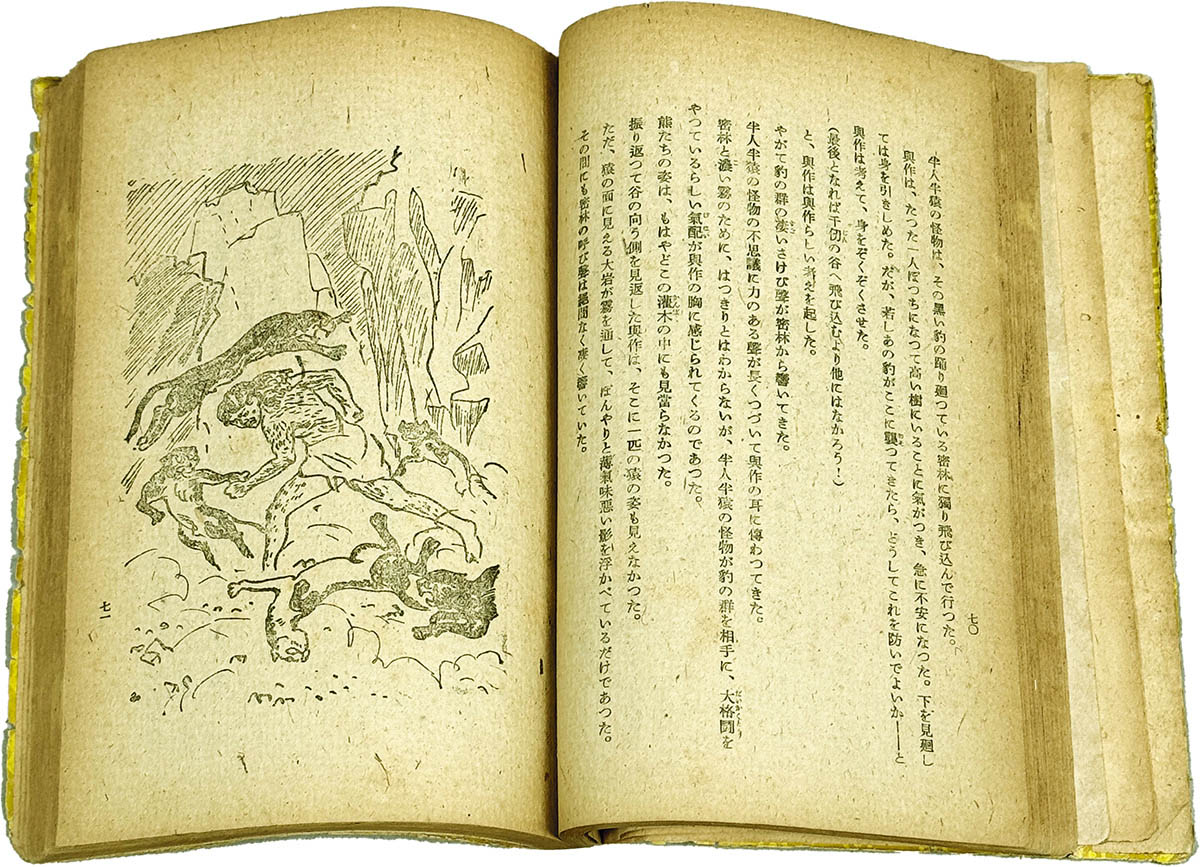 七〇
半人半猿の怪物は、その黒い豹の踊り廻つている密林に獨り飛び込んで行つた。
與作は、たつた一人ぼっちになつて高い樹にいることに氣がつき、急に不安になつた。下を見廻し
ては身を引きしめた。だが、若しあの豹がここに襲つてきたら、どうしてこれを防いでよいか――と
與作は考えて、身をぞくぞくさせた。
(最後となれば千仞の谷へ飛び込むより他にはなかろう!)
と、與作は與作らしい考えを起した。
やがて豹の群の凄いさけび聲が密林から響いてきた。
半人半猿の怪物の不思議に力のある聲が長くつづいて與作の耳に傳わつてきた。
密林と濃い霧のために、はつきりとはわからないが、半人半猿の怪物が豹の群を相手に、大格鬪を
やつているらしい氣配が與作の胸に感じられてくるのであつた。
熊たちの姿は、もはやどこの灌木の中にも見當らなかつた。
振り返つて谷の向う側を見返した與作は、そこに一匹の猿の姿も見えなかつた。
ただ、猿の面に見える大岩が霧を通して、ぼんやりと薄氣味悪い影を浮かべているだけであつた。
その間にも密林の呼び聲は絕間なく凄く響いていた。
七一